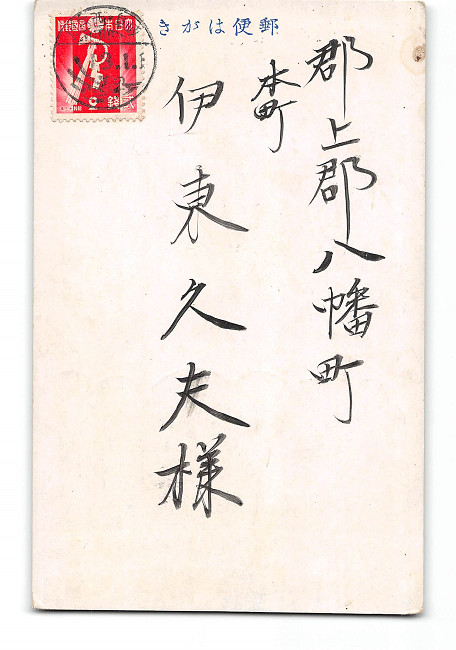 きがは便郵
郡上郡八幡町
本町
伊東久夫様